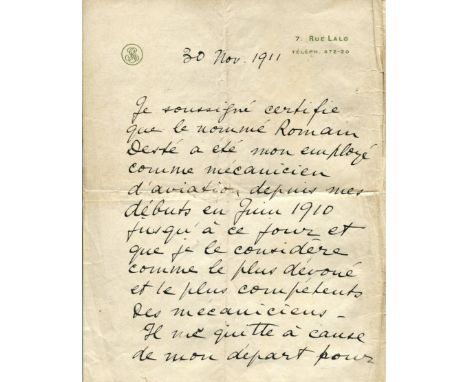 7. RUE LALO
TÉLÉPH. 672-20
30 Nov. 1911
Je soussigné certifie
que le nommé Romain
Desté a eté mon employé
comme mécanicien
d'aviation, depuis mes
débuts en Juin 1910
jusqu'à ce jour et
que je le considère
comme le plus dévoué
et le plus compétents
des mécaniciens -
Il me quitte à cause
de mon départ pour